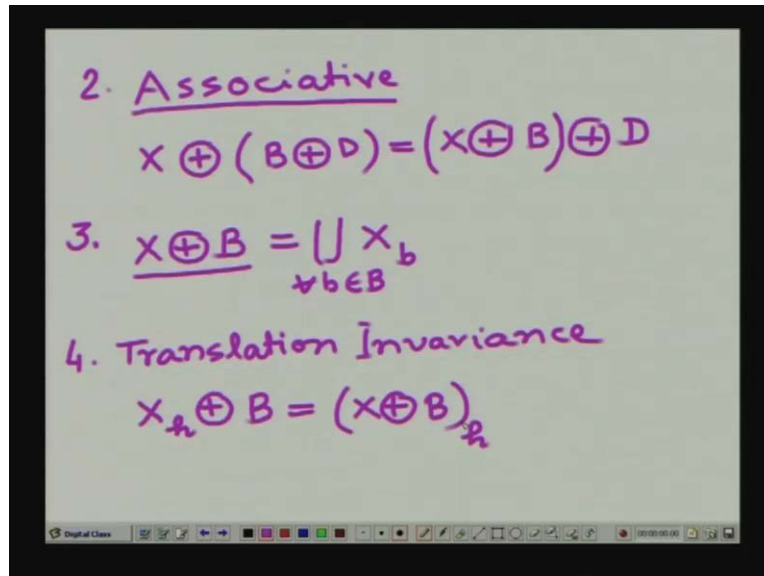 2. Associative
X ⊕ (B ⊕ D) = (X ⊕ B) ⊕ D
3. X ⊕ B = ⋃ X_b
∀ b ∈ B
4. Translation Invariance
X_h ⊕ B = (X ⊕ B)_h
Digital Class 00:00:00:00